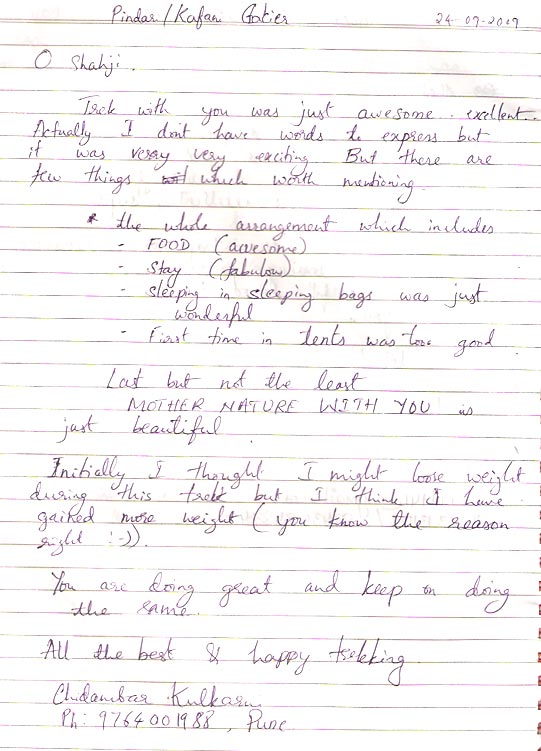 Pindar/Kafan Gacier 24-07-2019
O Shahji.
Trek with you was just awesome. excellent..
Actually I dont have words to express but
it was verry very exciting But there are
few things which worth mentioning.
* the whole arrangement which includes
- FOOD (awesome)
- Stay (fabulow)
- Sleeping in sleeping bags was just
wonderful
- First time in tents was too good
Last but not the least
MOTHER NATURE WITH YOU is
just beautiful.
Initially I thought I might loose weight
during this trekt but I think I have
gained more weight (you know the reason
right :-)).
You are doing great and keep on doing
the same.
All the best & happy trekking.
Chidambar Kulkarni
Ph: 9764001988, Pune